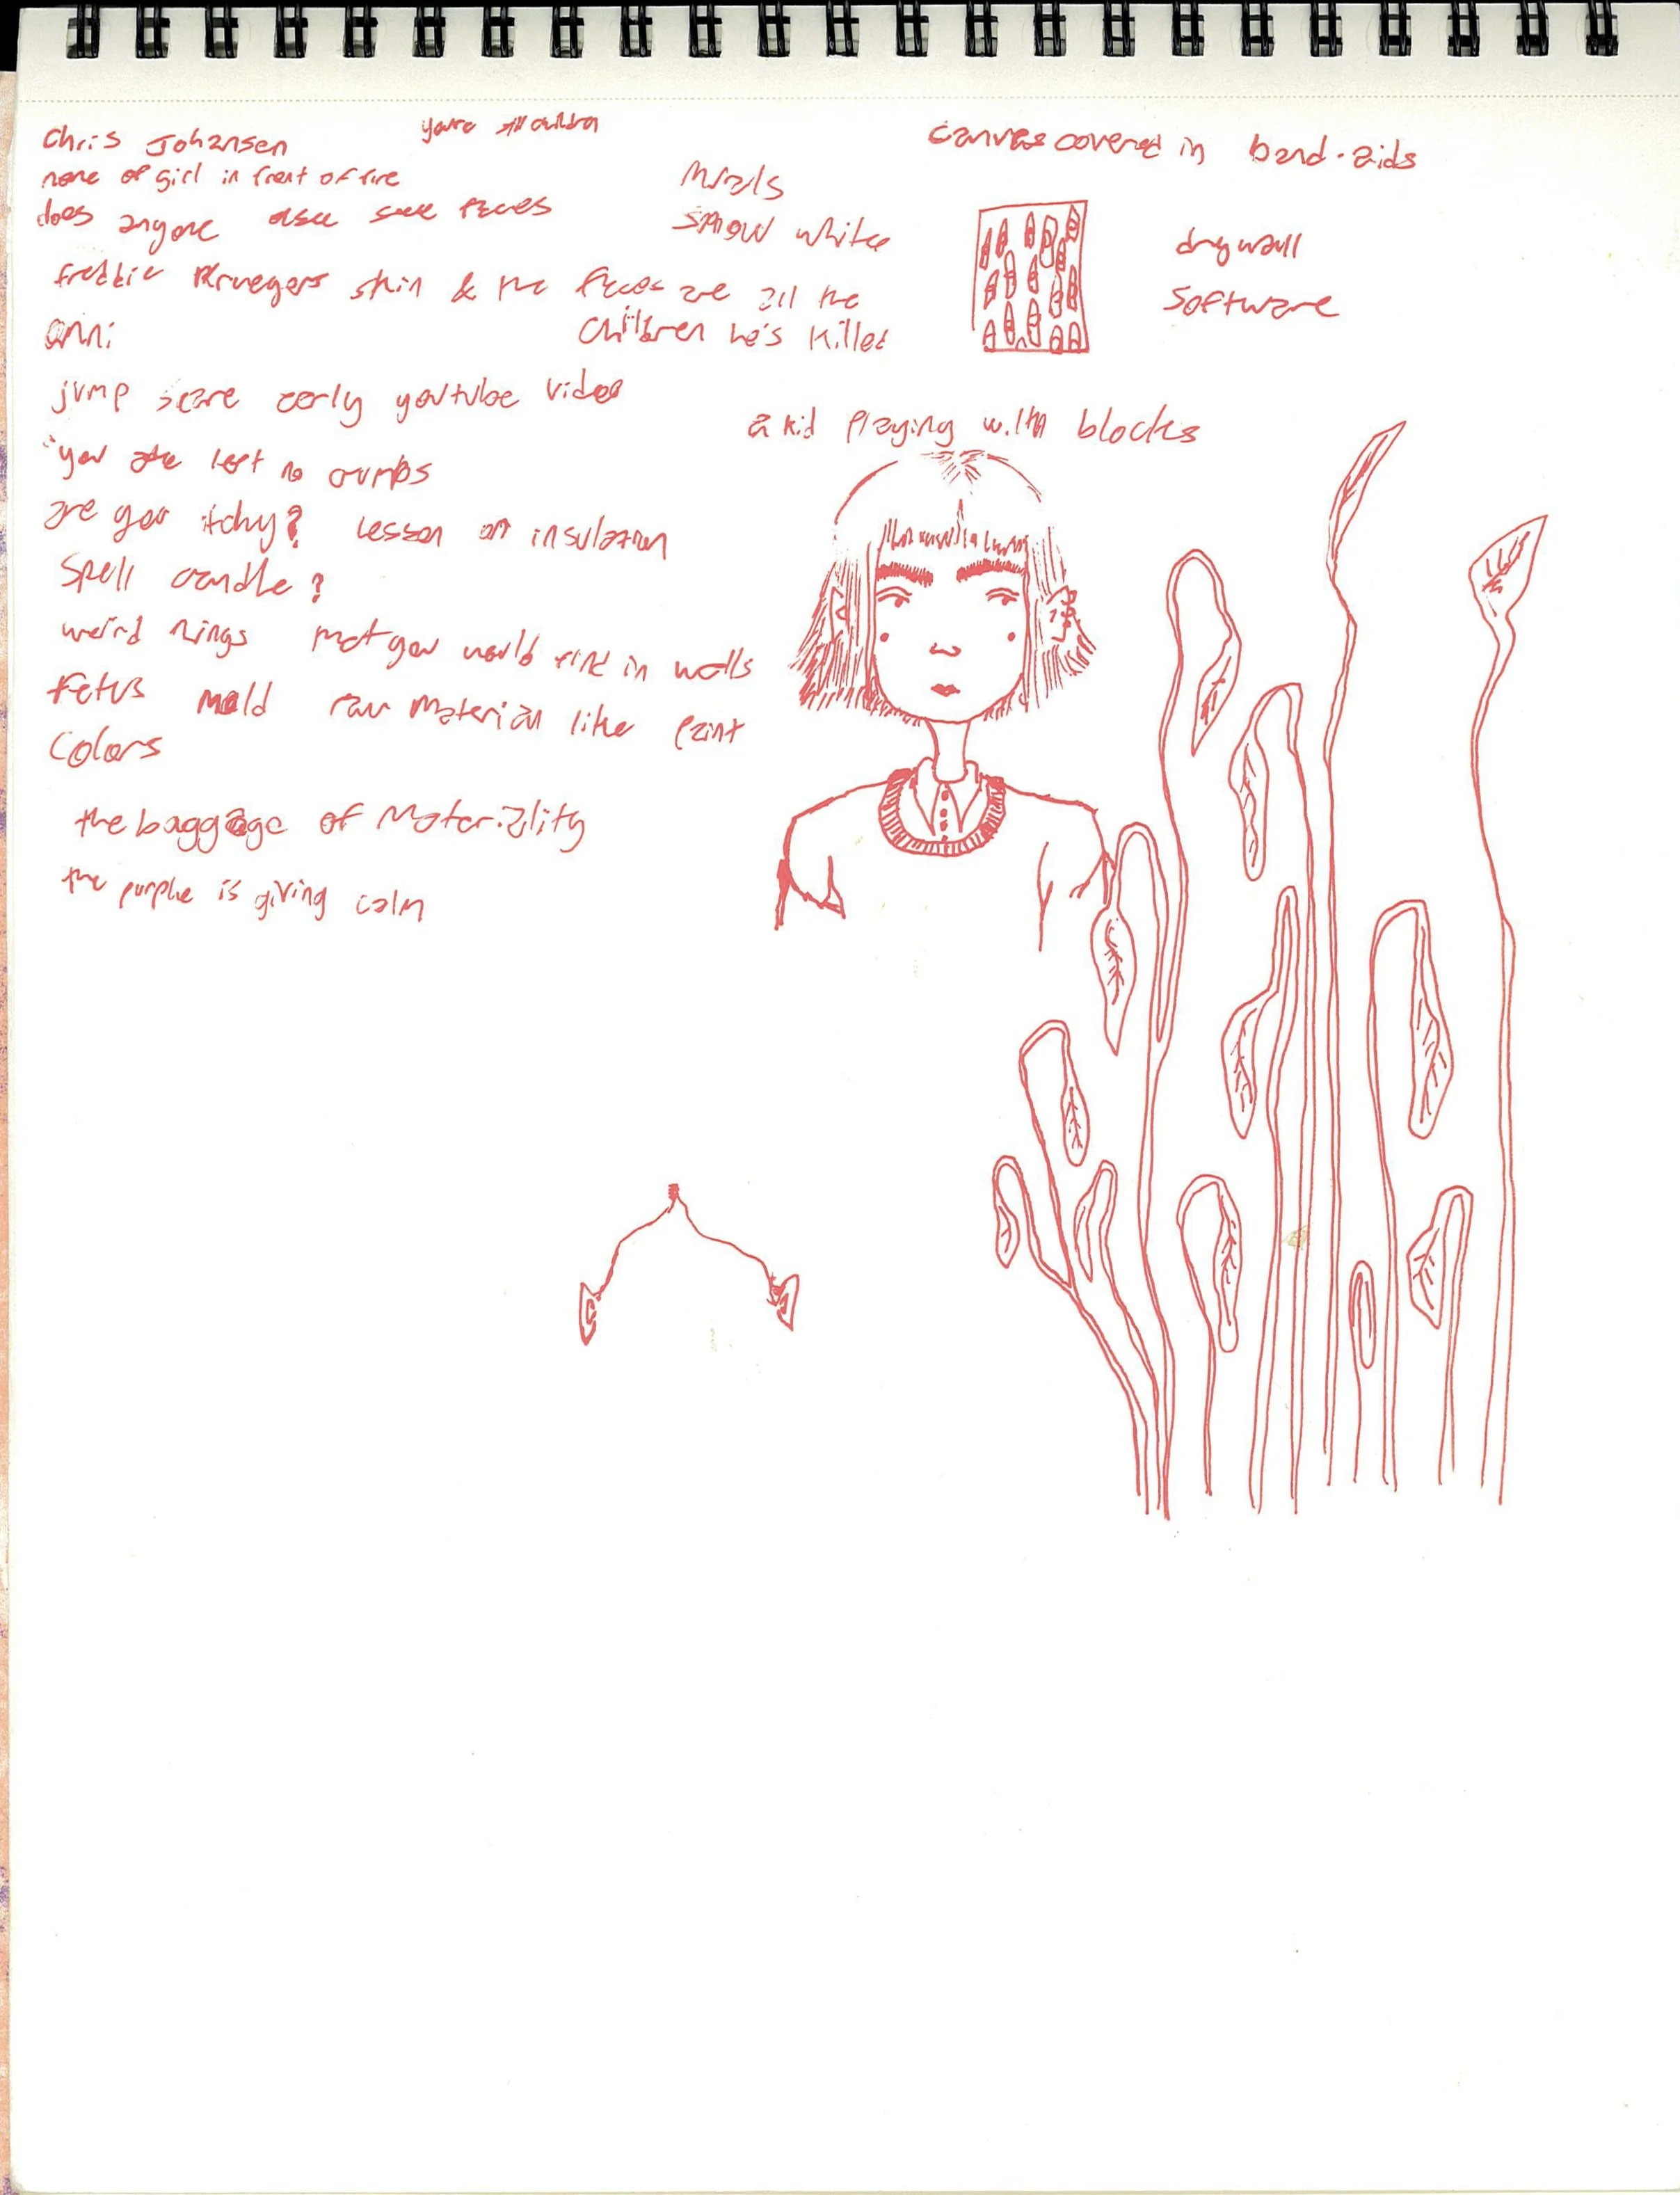 Chris Johansen
you're still children
meme of girl in front of fire
does anyone else see faces
freddie Kruegers skin & the faces are all the
children he's killed
murals
snow white
canvas covered in band-aids
drywall
software
omni
jump scare early youtube video
a kid playing with blocks
"you ate left no crumbs
are you itchy? lesson on insulation
spell candle?
weird things that you would find in walls
Fetus mold raw material like paint
colors
the baggage of materiality
the purple is giving calm